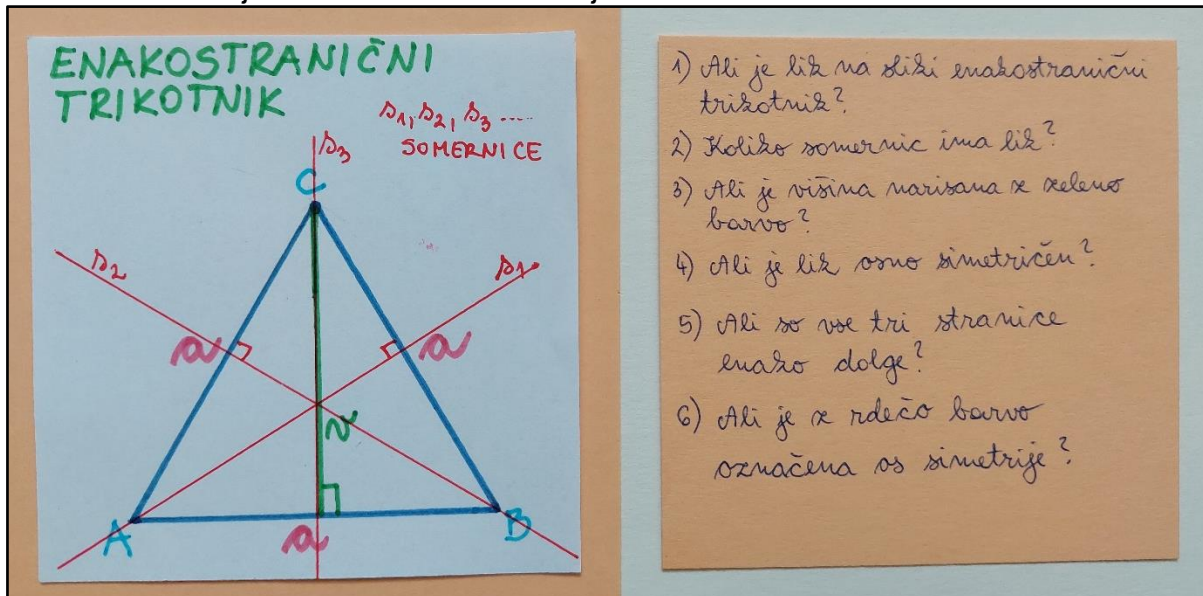 ENAKOSTRANIČNI
TRIKOTNIK
s1, s2, s3 ....
SOMERNICE
s3
C
s2
s1
a
a
v
A
a
B
1) Ali je lik na sliki enakostranični
trikotnik?
2) Koliko somernic ima lik?
3) Ali je višina narisana z zeleno
barvo?
4) Ali je lik osno simetričen?
5) Ali so vse tri stranice
enako dolge?
6) Ali je z rdečo barvo
označena os simetrije?